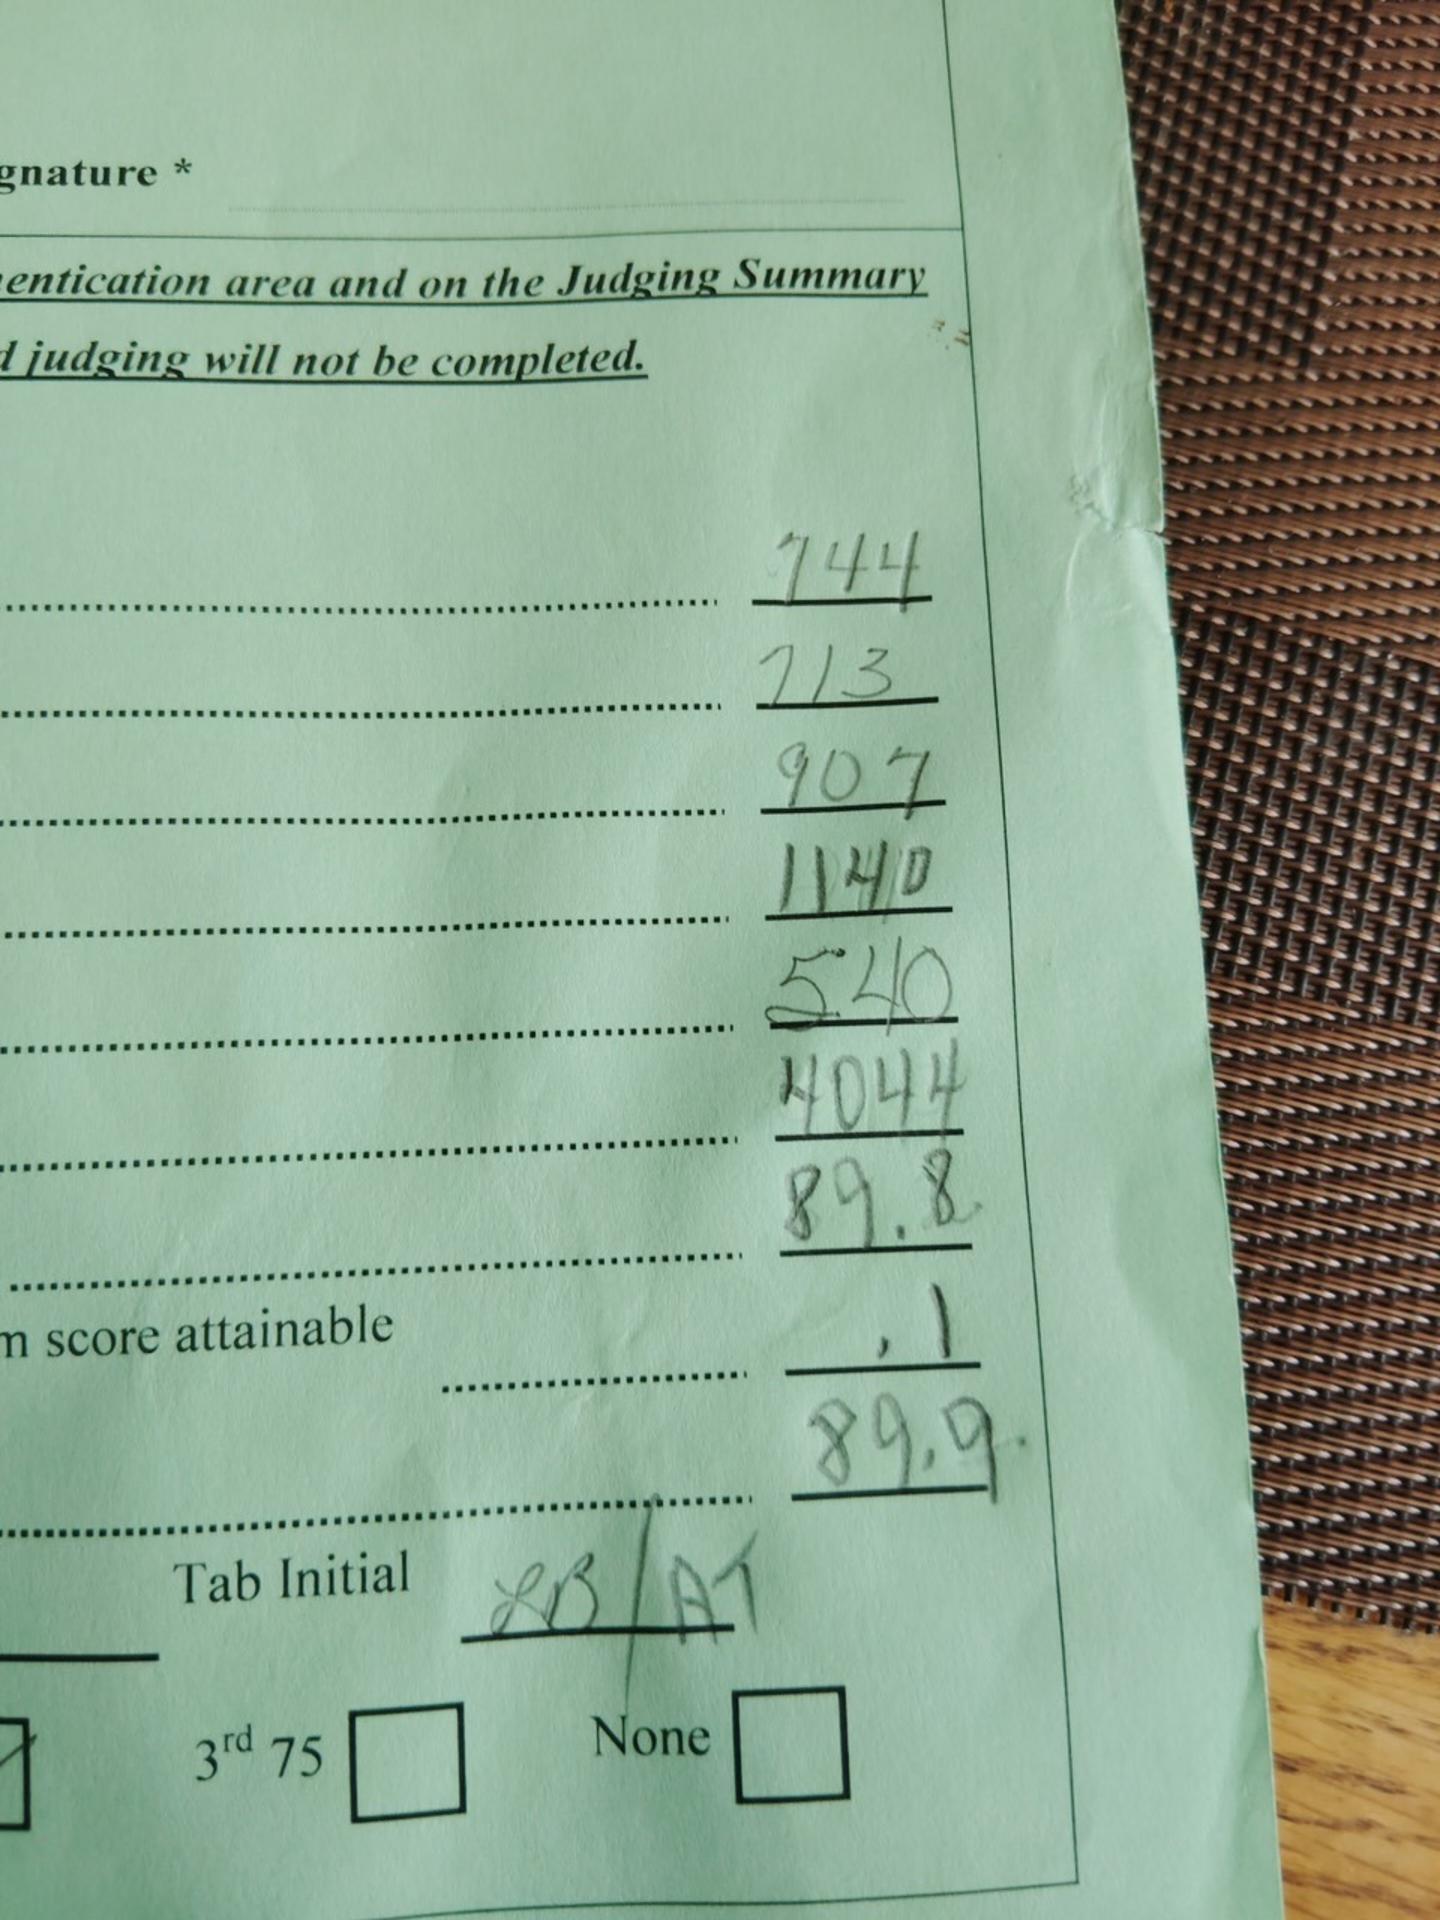 gnature *
entication area and on the Judging Summary
d judging will not be completed.
744
713
907
1140
540
4044
89.8
m score attainable
.1
89.9
Tab Initial LB/AT
3rd 75 None